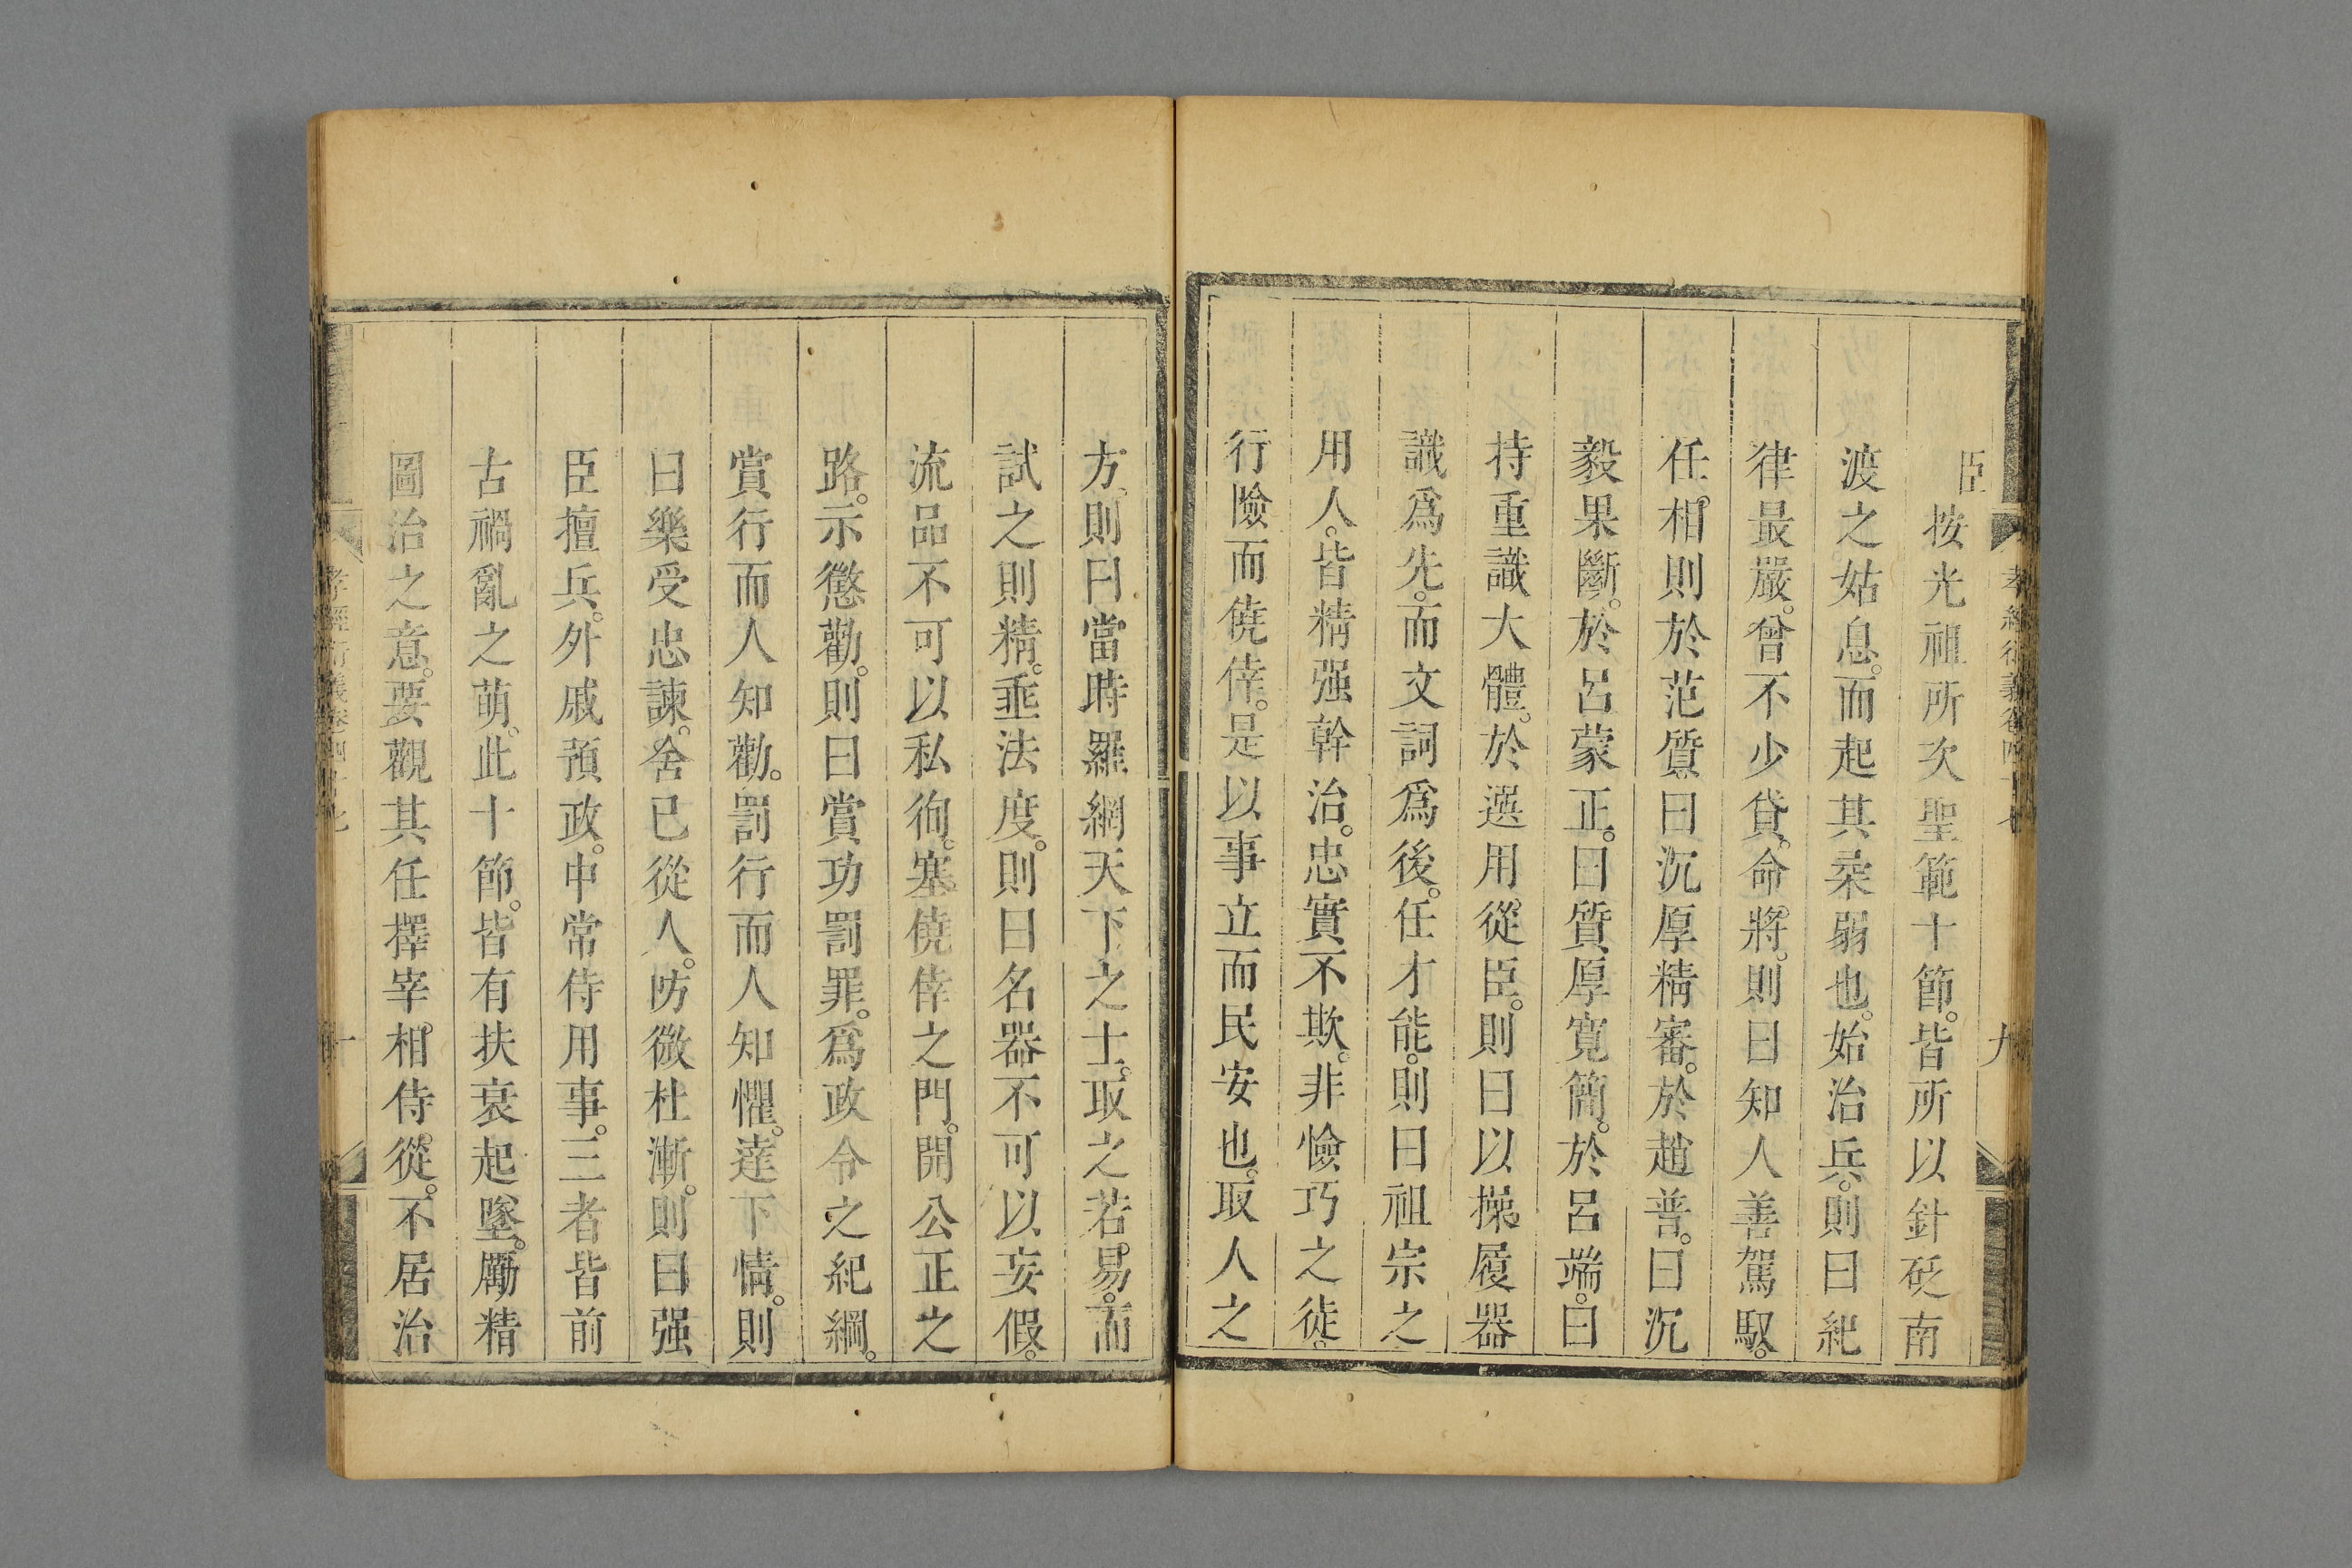 孝經衍義卷四十七
九
臣按光祖所次聖範十節。皆所以針砭南
渡之姑息。而起其柔弱也。始治兵。則曰紀
律最嚴。曾不少貸。命將。則曰知人善駕馭。
任相。則於范質曰沉厚精審。於趙普。曰沉
毅果斷。於呂蒙正。曰質厚寬簡。於呂端。曰
持重識大體。於選用從臣。則曰以操履器
識爲先。而文詞爲後。任才能。則曰祖宗之
用人。皆精强幹治。忠實不欺。非憸巧之徒。
行險而僥倖。是以事立而民安也。取人之
方。則曰當時羅網天下之士。取之若易。而
試之則精。垂法度。則曰名器不可以妄假。
流品不可以私徇。塞僥倖之門。開公正之
路。示懲勸。則曰賞功罰罪。爲政令之紀綱。
賞行而人知勸。罰行而人知懼。達下情。則
曰樂受忠諫。舍已從人。防微杜漸。則曰强
臣擅兵。外戚預政。中常侍用事。三者皆前
古禍亂之萌。此十節。皆有扶衰起墜。勵精
圖治之意。要觀其任擇宰相侍從。不居治
孝經衍義卷四十七
十